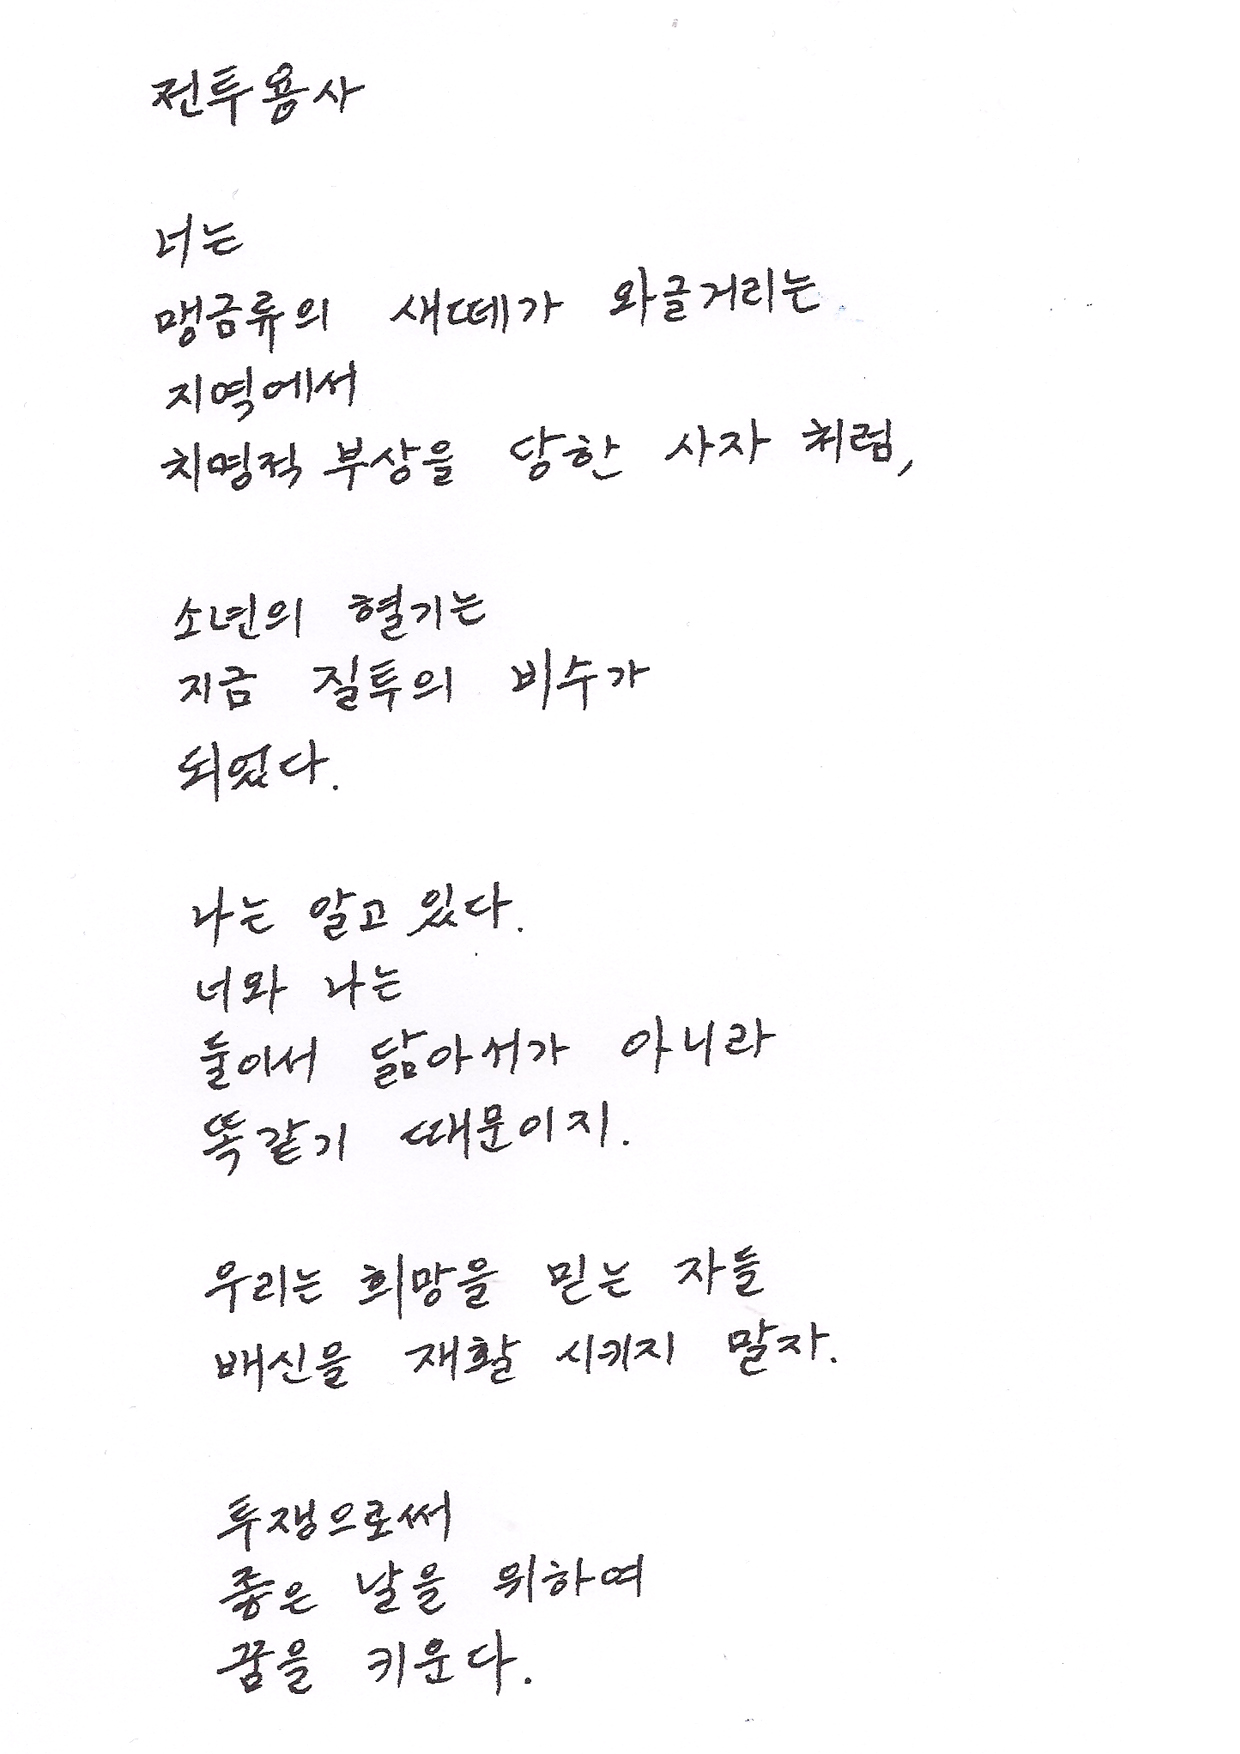 전투용사
너는
맹금류의 새떼가 와글거리는
지역에서
치명적 부상을 당한 사자 처럼,
소년의 혈기는
지금 질투의 비수가
되었다.
나는 알고 있다.
너와 나는
둘이서 닮아서가 아니라
똑같기 때문이지.
우리는 희망을 믿는 자들
배신을 재활 시키지 말자.
투쟁으로써
좋은 날을 위하여
꿈을 키운다.